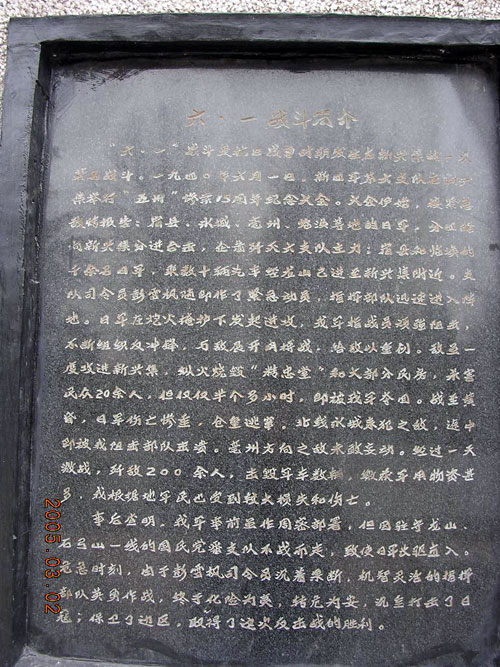 六·一战斗简介
"六·一"战斗是抗日战争时期发生在新兴集的一次
著名战斗。一九四〇年六月一日，新四军第六支队在新兴
集举行"五卅"惨案15周年纪念大会。大会伊始，
敌情报告：宿县、永城、亳州、等地的日军，分
向新兴集分进合击，企图歼灭六支队主力；宿县和
千余名日军，乘数十辆汽车经龙山已进至新兴集附近。支
队司令员彭雪枫随即作了紧急动员，指挥部队迅速进入阵
地。日军在炮火掩护下发起进攻，我军指战员顽强阻击，
不断组织反冲锋，与敌展开肉搏战，给敌以重创。敌虽一
度攻进新兴集，纵火烧毁"精忠堂"和大部分民房，杀害
民众20余人，但仅仅半个多小时，即被我军夺回。战至黄
昏，日军伤亡惨重，仓皇逃窜。北线永城来犯之敌，途中
即被我阻击部队击溃。亳州方向之敌未敢妄动。经过一天
激战，歼敌200余人，击毁军车数辆，缴获军用物资甚
多，我根据地军民也受到较大损失和伤亡。
事后查明，我军事前虽作周密部署，但因驻守龙山、
石弓山一线的国民党杂支队不战而走，致使日军长驱直入。
危急时刻，由于彭雪枫司令员沉着果断，机智灵活的指挥
部队英勇作战，终于化险为夷，转危为安，沉重打击了日
寇；保卫了边区，取得了这次反击战的胜利。
2005.03.02